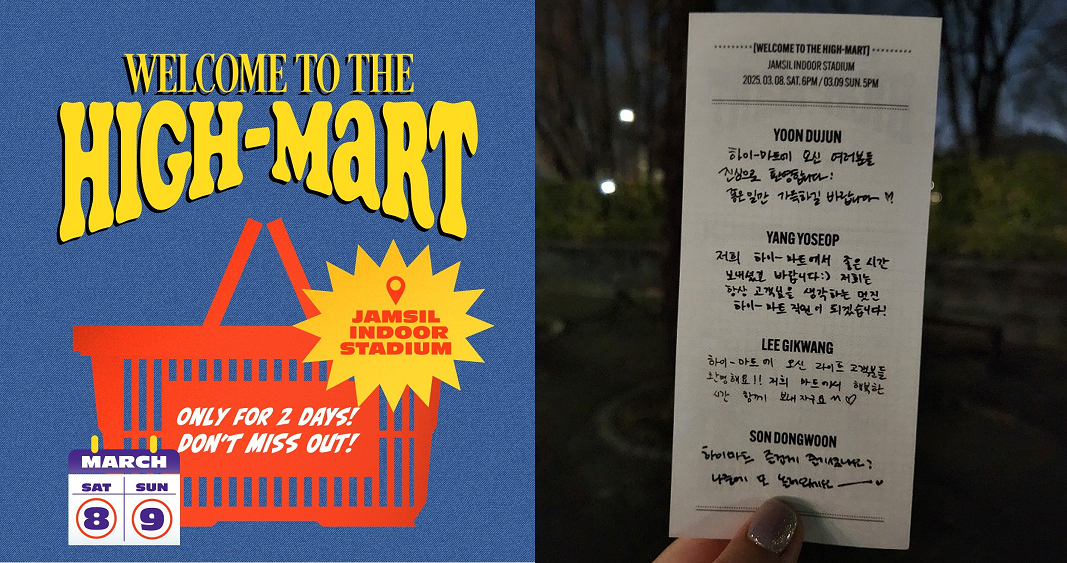 WELCOME TO THE
HIGH-MART
JAMSIL
INDOOR
STADIUM
ONLY FOR 2 DAYS!
DON'T MISS OUT!
MARCH
SAT SUN
8 9
[WELCOME TO THE HIGH-MART]
JAMSIL INDOOR STADIUM
2025. 03. 08. SAT. 6PM / 03.09 SUN. 5PM
YOON DUJUN
하이-마트에 오신 여러분들
진심으로 환영합니다!
좋은 일만 가득하길 바랍니다
YANG YOSEOP
저희 하이-마트에서 좋은 시간
보내셨길 바랍니다:) 저희는
항상 고객님을 생각하는 멋진
하이-마트 직원이 되겠습니다!
LEE GIKWANG
하이-마트에 오신 라이트 고객분들
환영해요!! 저희 마트에서 행복한
시간 함께 보내자구요 ^^ ♡
SON DONGWOON
하이마트 즐겁게 즐기셨나요?
나중에 또 놀러오세요